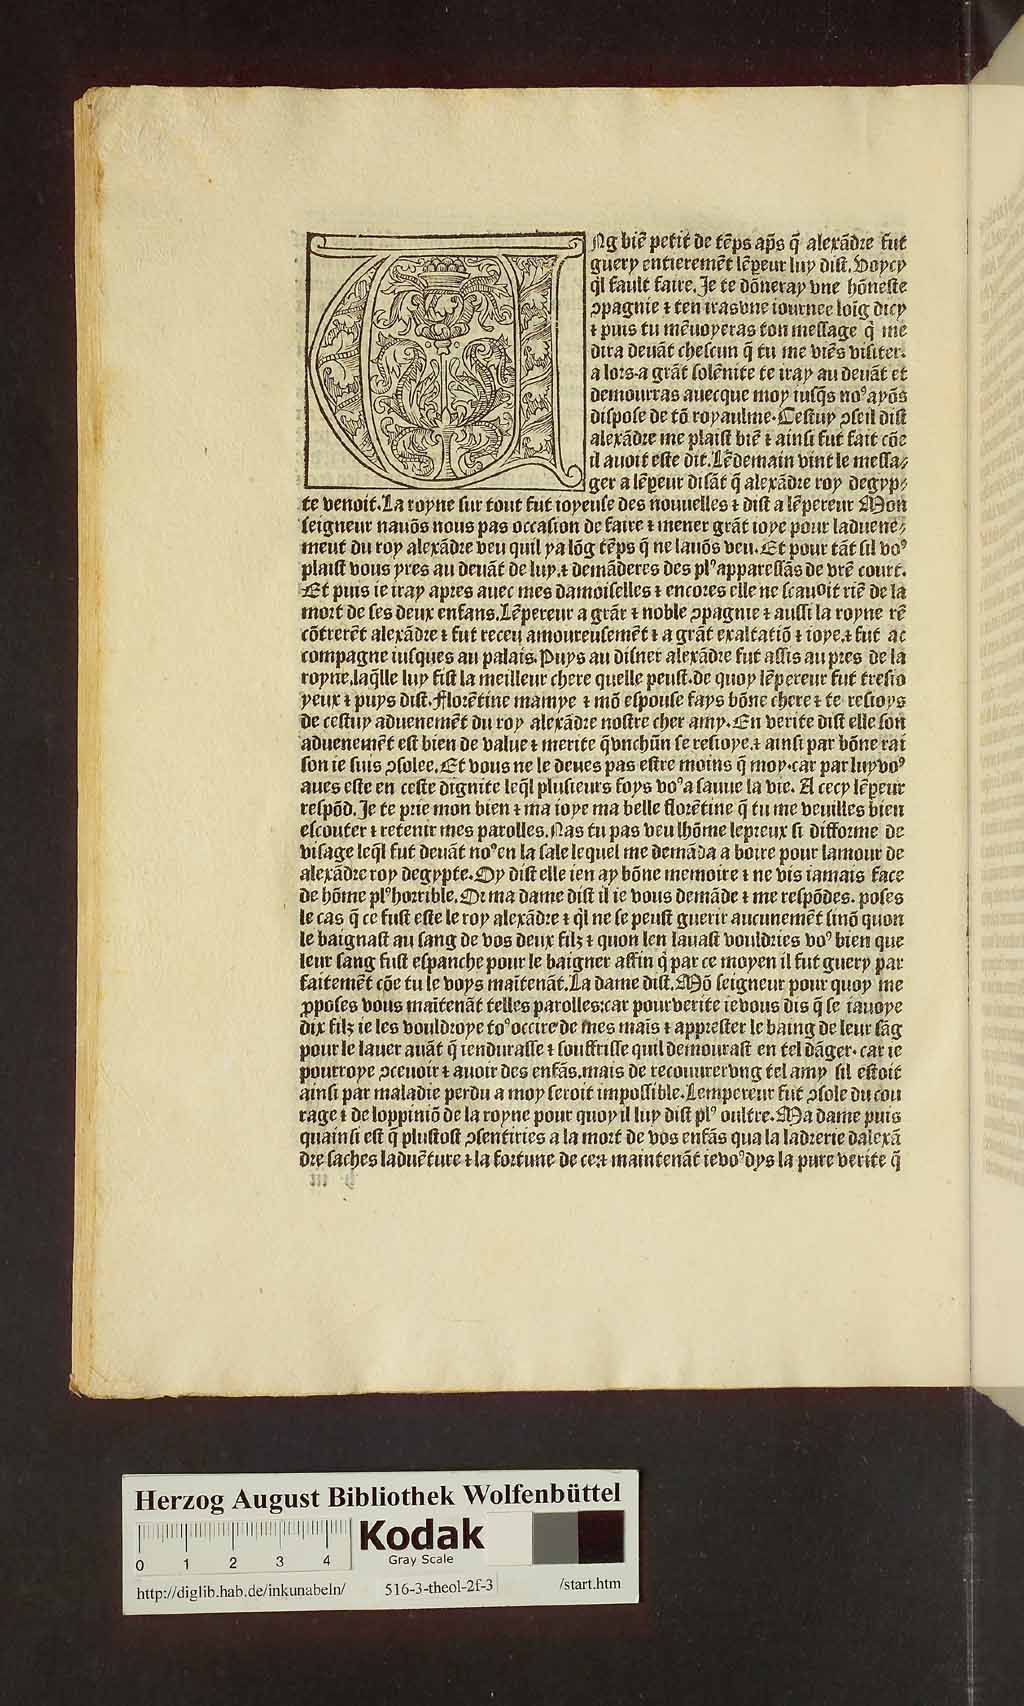 UNg biẽ petit de tẽps ap̃s q̃ alexãdre fut
guery entieremẽt lẽpeur luy dist. Voycy
q̃l fault faire. Je te dõneray vne hõneste
ꝯpagnie ⁊ ten iras vne iournee loĩg dicy
⁊ puis tu mẽuoyeras ton message q̃ me
dira deuãt chescun q̃ tu me viẽs visiter.
a lors a grãt solẽnite te iray au deuãt et
demourras auecque moy iusq̃s noꝰ ayõs
dispose de tõ royaulme. Cestuy ꝯseil dist
alexãdre me plaist biẽ ⁊ ainsi fut fait cõe
il auoit este dit. Lẽdemain vint le messa⸗
ger a lẽpeur disãt q̃ alexãdre roy degyp⸗
te venoit. La royne sur tout fut ioyeuse des nouuelles ⁊ dist a lẽpereur Mon
seigneur nauõs nous pas occasion de faire ⁊ mener grãt ioye pour laduene⸗
ment du roy alexãdre veu quil ya lõg tẽps q̃ ne lauõs veu. Et pour tãt sil voꝰ
plaist vous yres au deuãt de luy. ⁊ demãderes des plꝰ apparessãs de vrẽ court.
Et puis ie iray apres auec mes damoiselles ⁊ encores elle ne scauoit riẽ de la
mort de ses deux enfans. Lẽpereur a grãt ⁊ noble ꝯpagnie ⁊ aussi la royne rẽ
cõtrerẽt alexãdre ⁊ fut receu amoureusemẽt ⁊ a grãt exaltatiõ ⁊ ioye. ⁊ fut ac
compagne iusques au palais. Puys au disner alexãdre fut assis au pres de la
royne, laq̃lle luy fist la meilleur chere quelle peust. de quoy lẽpereur fut tresio
yeux ⁊ puys dist. Florẽtine mamye ⁊ mõ espouse fays bõne chere ⁊ te resioys
de cestuy aduenemẽt du roy alexãdre nostre cher amy. En verite dist elle son
aduenemẽt est bien de value ⁊ merite q̃vnchũn se resioye. ⁊ ainsi par bõne rai
son ie suis ꝯsolee. Et vous ne le deues pas estre moins q̃ moy. car par luy voꝰ
aues este en ceste dignite leq̃l plusieurs foys voꝰ a sauue la vie. A cecy lẽpeur
respõd. Je te prie mon bien ⁊ ma ioye ma belle florẽtine q̃ tu me veuilles bien
escouter ⁊ retenir mes parolles. Nas tu pas veu lhõme lepreux si difforme de
visage leq̃l fut deuãt noꝰ en la sale lequel me demãda a boire pour lamour de
alexãdre roy degypte. Oy dist elle ien ay bõne memoire ⁊ ne vis iamais face
de hõme plꝰ horrible. Or ma dame dist il ie vous demãde ⁊ me respõdes. poses
le cas q̃ ce fust este le roy alexãdre ⁊ q̃l ne se peust guerir aucunemẽt sinõ quon
le baignast au sang de vos deux filz ⁊ quon len lauast vouldries voꝰ bien que
leur sang fust espanche pour le baigner affin q̃ par ce moyen il fut guery par
faitemẽt cõe tu le voys maĩtenãt. La dame dist. Mõ seigneur pour quoy me
ꝓposes vous maĩtenãt telles parolles: car pour verite ie vous dis q̃ se iauoye
dix filz ie les vouldroye toꝰ occire de mes maĩs ⁊ apprester le baing de leur sãg
pour le lauer auãt q̃ iendurasse ⁊ souffrisse quil demourast en tel dãger. car ie
pourroye ꝯceuoir ⁊ auoir des enfãs. mais de recouurer vng tel amy sil estoit
ainsi par maladie perdu a moy seroit impossible. Lempereur fut ꝯsole du cou
rage ⁊ de loppiniõ de la royne pour quoy il luy dist plꝰ oultre. Ma dame puis
quainsi est q̃ plustost ꝯsentiries a la mort de vos enfãs qua la ladrerie dalexã
dre saches laduẽture ⁊ la fortune de ce: ⁊ maintenãt ie voꝰ dys la pure verite q̃
Herzog August Bibliothek Wolfenbüttel
0 1 2 3 4
Kodak
Gray Scale
http://diglib.hab.de/inkunabeln/ 516-3-theol-2f-3 /start.htm